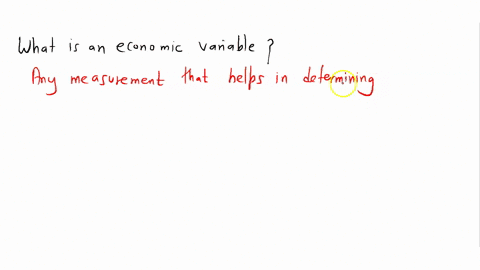 What is an economic variable?
Any measurement that helps in determining